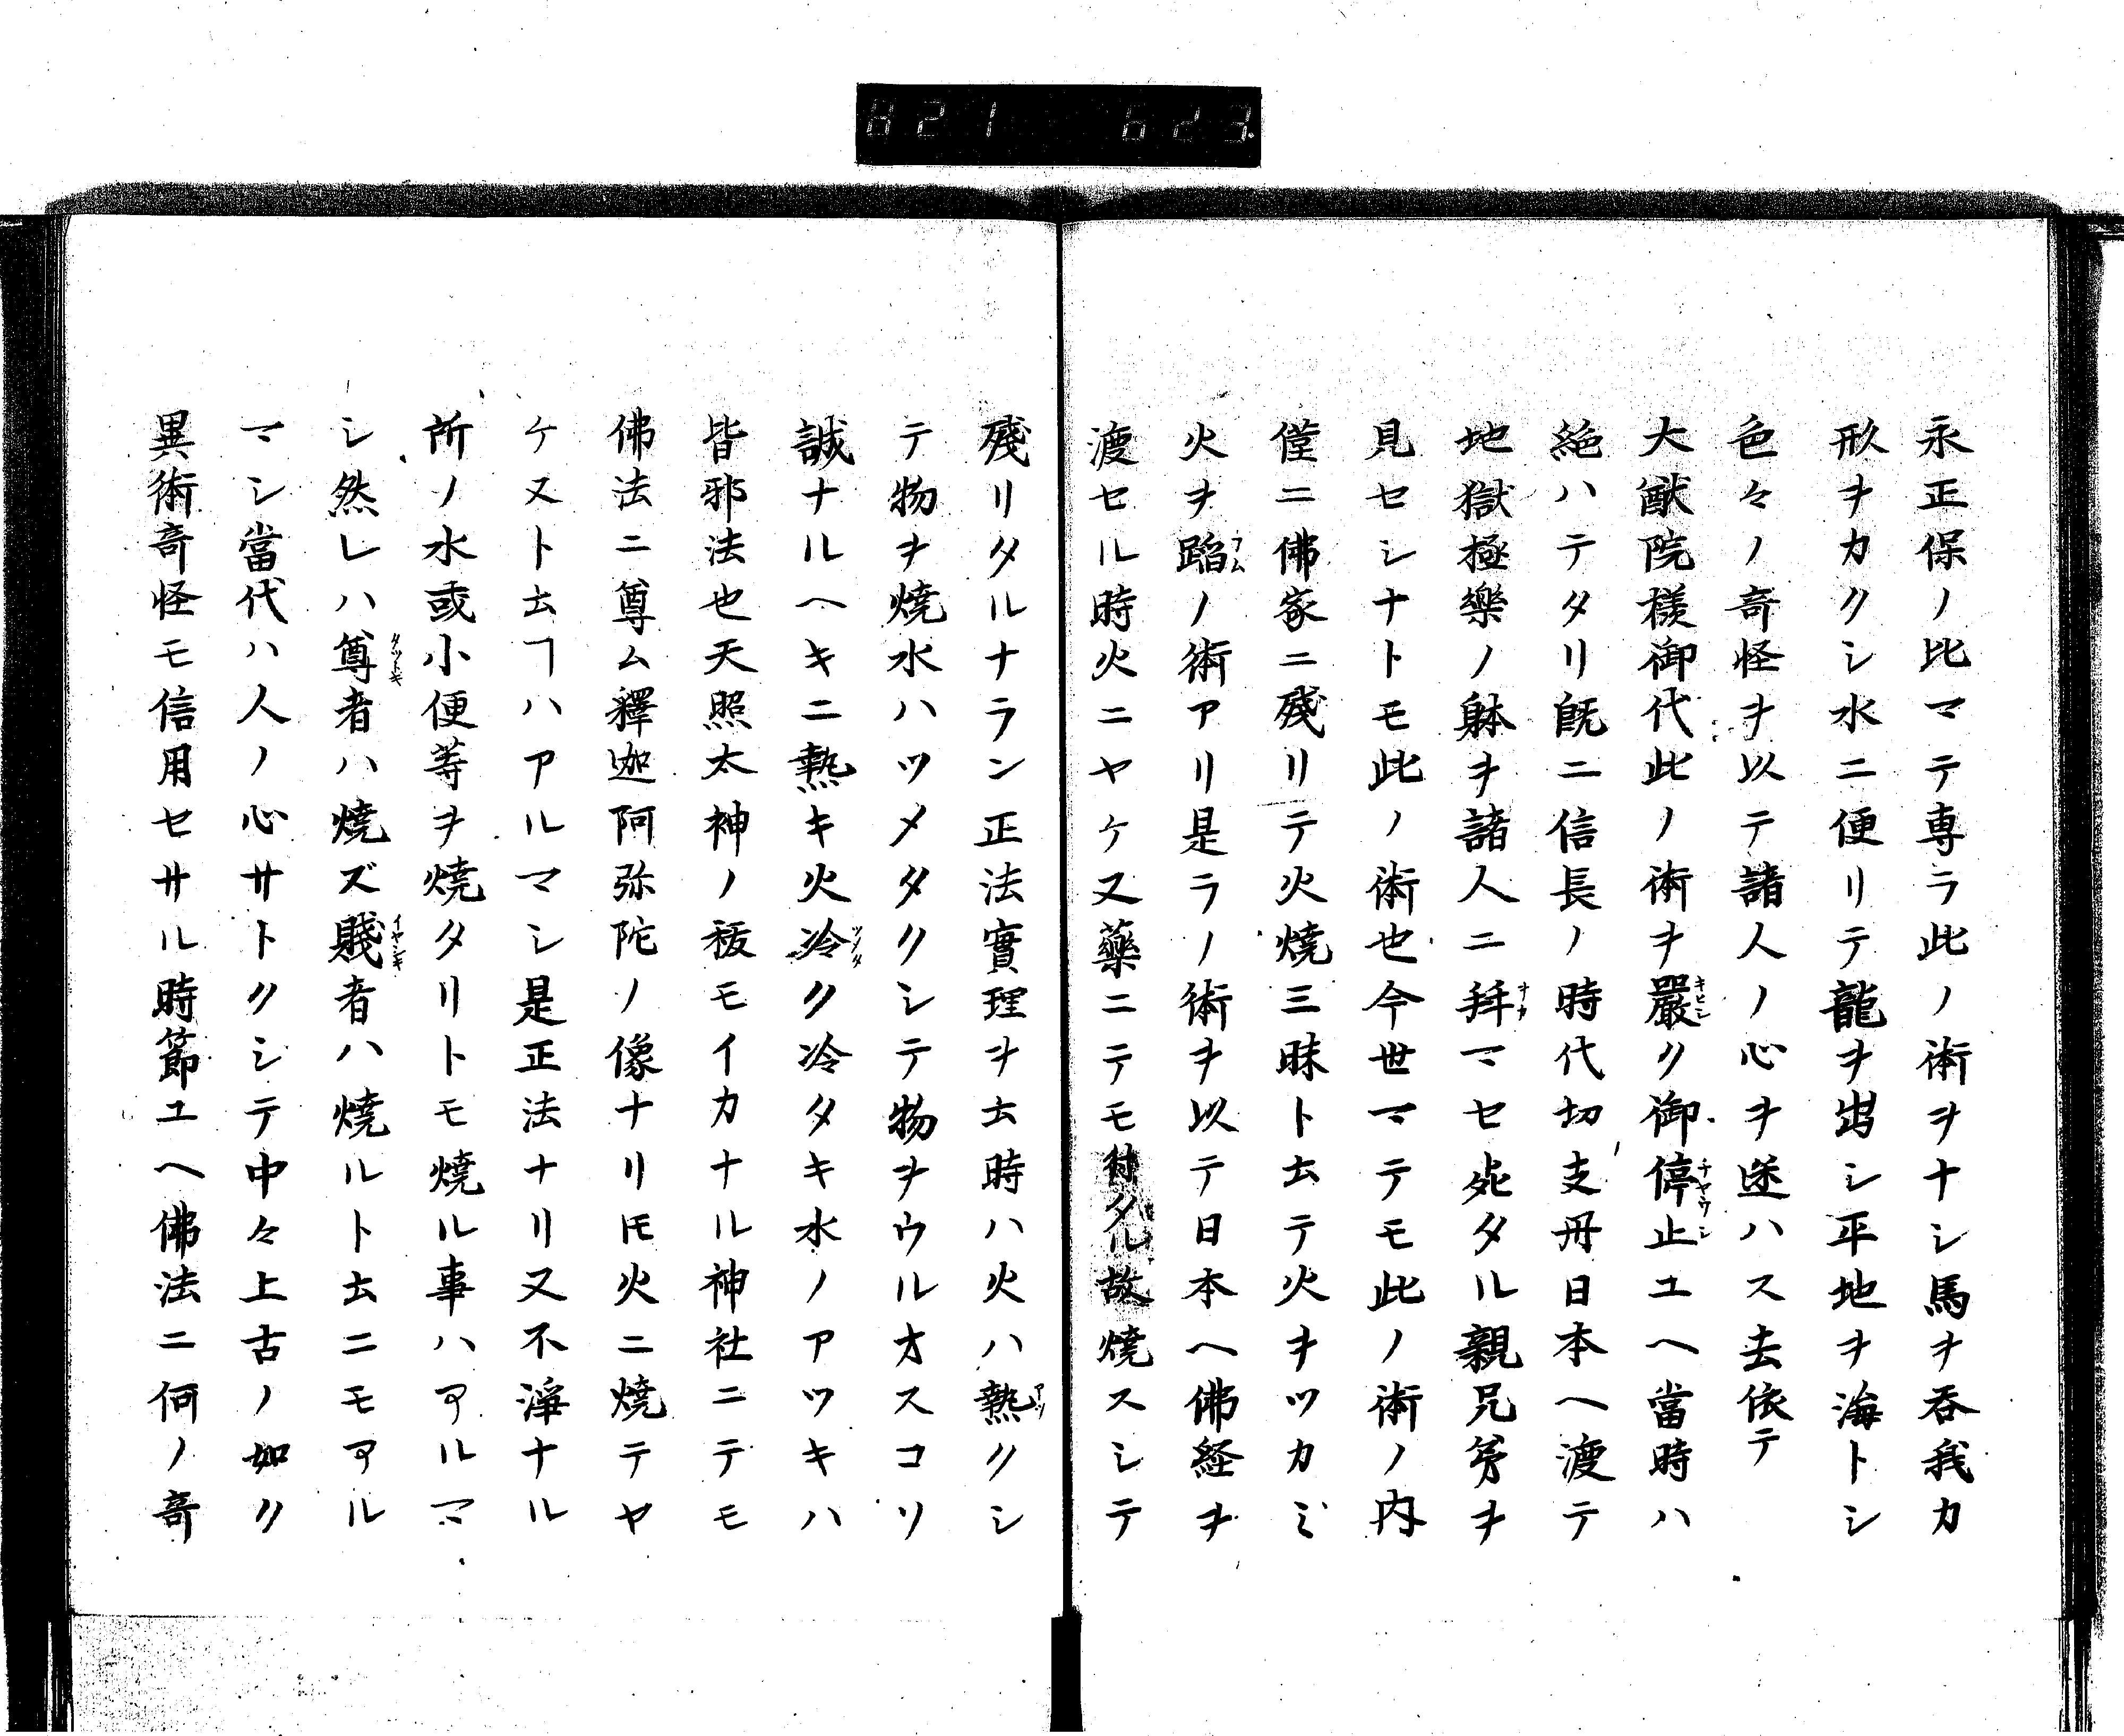 821 623
永正保ノ比マテ専ラ此ノ術ヲナシ馬ヲ呑我カ
形ヲカクシ水ニ便リテ龍ヲ出シ平地ヲ海トシ
色々ノ奇怪ヲ以テ諸人ノ心ヲ迷ハス去依テ
大猷院様御代此ノ術ヲ嚴ク御停止ユヘ當時ハ
絶ハテタリ既ニ信長ノ時代切支丹日本ヘ渡テ
地獄極樂ノ躰ヲ諸人ニ拜マセ死タル親兄弟ヲ
見セシナトモ此ノ術也今世マテモ此ノ術ノ内
僅ニ佛家ニ殘リテ火焼三昧ト云テ火ヲツカミ
火ヲ蹈ノ術アリ是ラノ術ヲ以テ日本ヘ佛経ヲ
渡セル時火ニヤケヌ藥ニテモ付タル故焼スシテ
殘リタルナラン正法實理ヲ云時ハ火ハ熱クシ
テ物ヲ焼水ハツメタクシテ物ヲウルオスコソ
誠ナルヘキニ熱キ火冷ク冷タキ水ノアツキハ
皆邪法也天照太神ノ祓モイカナル神社ニテモ
佛法ニ尊ム釋迦阿弥陀ノ像ナリ𪜈火ニ焼テヤ
ケヌト云ヿハアルマシ是正法ナリ又不淨ナル
所ノ水或小便等ヲ焼タリトモ焼ル事ハアルマ
シ然レハ尊者ハ焼ズ賤者ハ焼ルト云ニモアル
マシ當代ハ人ノ心サトクシテ中々上古ノ如ク
異術奇怪モ信用セサル時節ユヘ佛法ニ何ノ奇